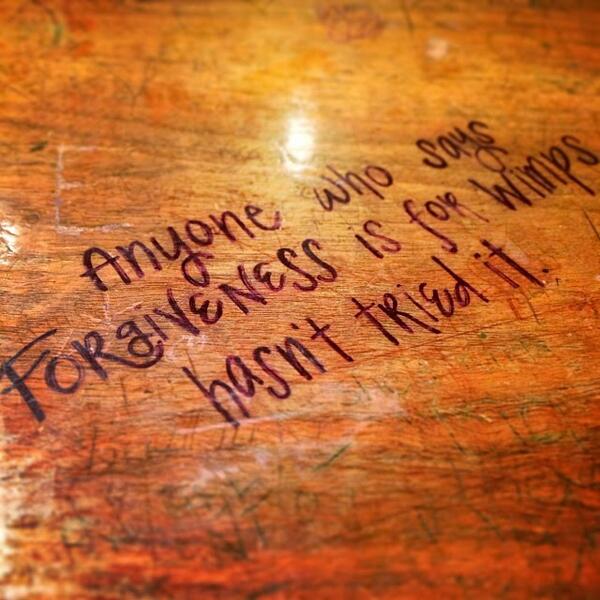 Anyone who says
FORgIVENESS is foR Wimps
hasn't tRiEd it.